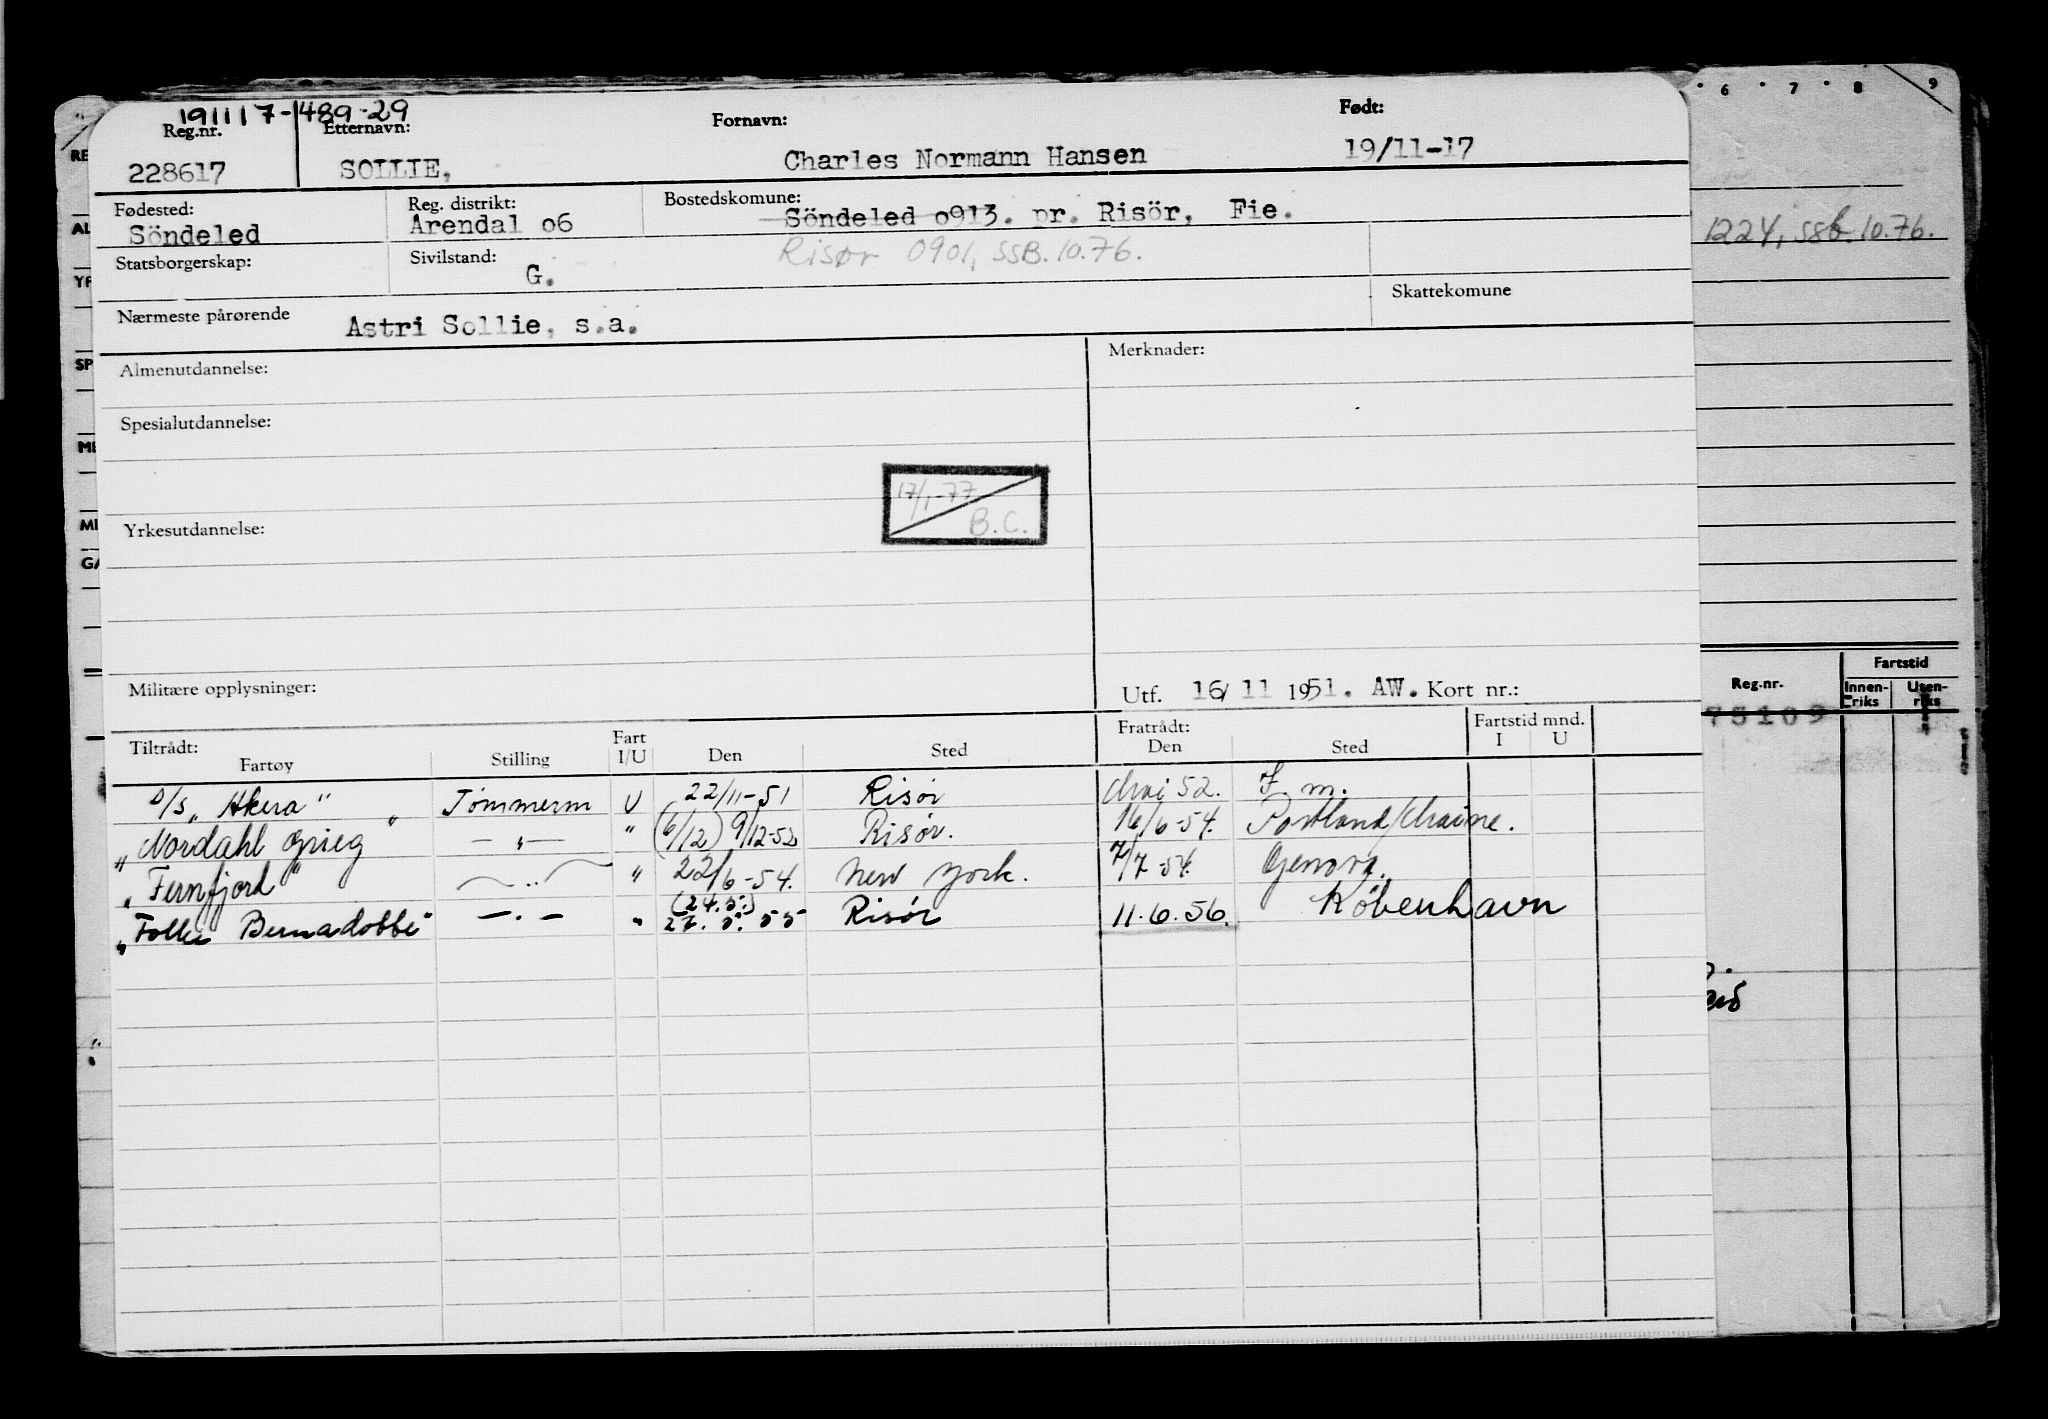 191117-489-29
Reg.nr. Etternavn: Fornavn: Født:
228617 SOLLIE, Charles Normann Hansen 19/11-17
Fødested: Reg. distrikt: Bostedskomune:
Söndeled Arendal o6 Söndeled o913. pr. Risör, Fie.
Statsborgerskap: Sivilstand: G. Risør 0901, SSB.10.76.
Skattekomune
Nærmeste pårørende Astri Sollie, s.a.
Almenutdannelse: Merknader:
Spesialutdannelse:
17/1-77
B.C.
Yrkesutdannelse:
Militære opplysninger: Utf. 16/ 11 1951. AW. Kort nr.:
Tiltrådt: Fart Fratrådt: Fartstid mnd.
Fartøy Stilling I/U Den Sted Den Sted I U
D/S „Akera" Tømmerm U 22/11-51 Risør Mai 52. F. m.
„Nordahl Grieg" — „ — " (6/12) 9/12-52 Risør. 16/6-54. Portland/Maine.
„Fernfjord" — „ — " 22/6-54. New York. 7/7-54. Genova.
(24.5.)
„Folke Bernadotte" — „ — " 27. 5. 55 Risör 11.6.56. København
6 7 8 9
1224, SSB.10.76.
Reg.nr. Fartstid
Innen-riks Uten-riks
75109
RE
AL
SP
GA